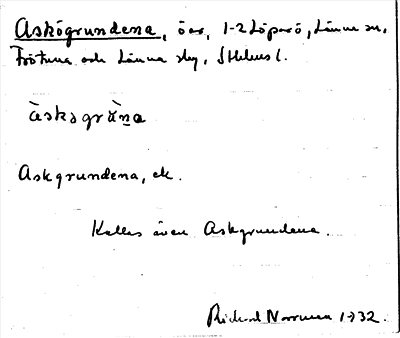 Askögrundena, öar, 1-2 Löparö, Länna sn,
Frötuna och Länna skg, Sthlms l.
àskagrὰna
Askgrundena, ek.
Kallas även Askgrundena.
Richard Norrman 1932.